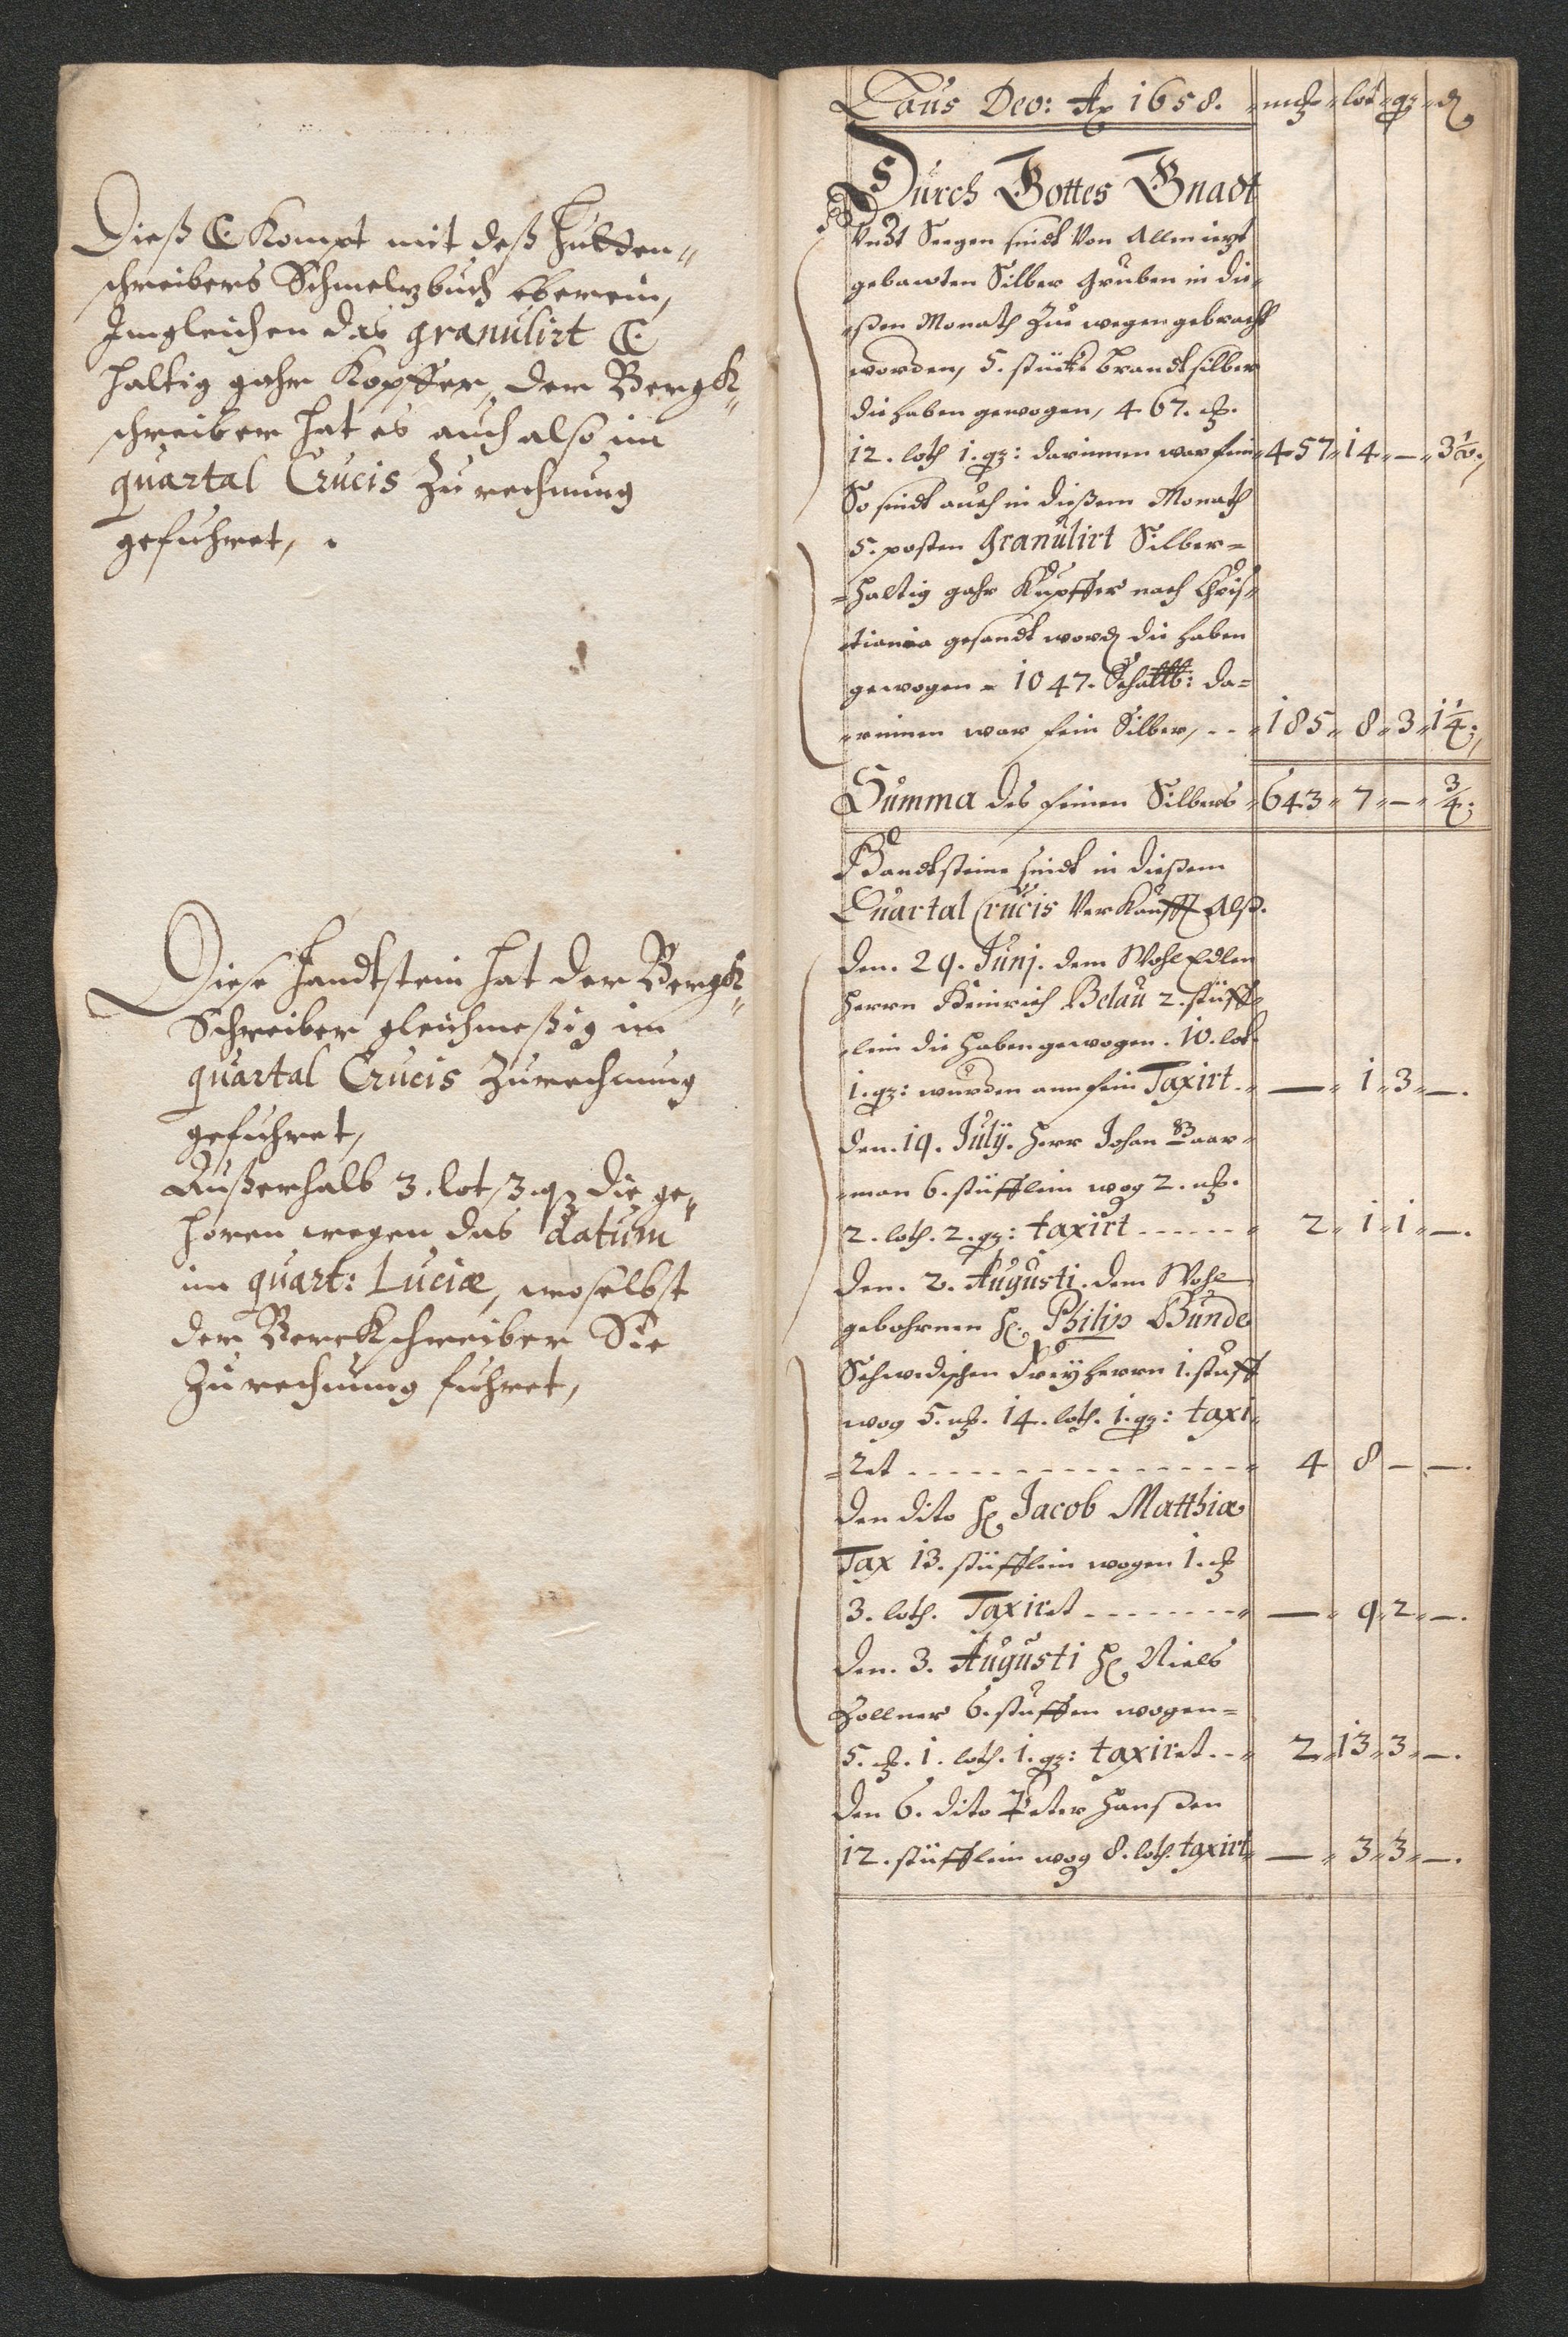 Dieß ☾ Kompt mit deß Hütten„
schreibers Schmeltzbuch eberein,
Imgleichen das granulirt ☾
haltig gahr Kopffer, der Bergk„
schreiber hat es auch also im
quartal Crucis Zu rechnung
gefuhret,
Diese Handtstein hat der Bergk„
Schreiber gleichmeßig im
quartal Crucis Zu rechnung
gefuhret,
Außerhalb 3. lot 3. q̃ die ge„
hören wegen das datum
im quart: Luciæ, woselbst
der Berckschreiber Sie
Zu rechnung fuhret,
Laus Deo: Ao 1658. mk lot qz ₰
Durch Gottes Gnadt
Vndt Seegen sindt Von Allen ietzt
gebawten Silber Gruben in die„
„ßen Monath Zu wegen gebracht
worden, 5. stücke brandtsilber
die haben gewogen, 467. mk.
12. loth 1. qz: darinnen war fein 457 „ 14 „ — „ 3½.
So sindt auch in dießem Monath
5. posten Granulirt Silber=
=haltig gahr Kupffer nach Chris„
tiania gesandt word die haben
gewogen = 1047. Scha℔: da=
„rinnen war fein Silber, -- „ 185 „ 8 „ 3 „ 1¼.
Summa des feinen Silbers „ 643 „ 7 „ — „ ¾.
Handtsteine sindt in dießem
Quartal Crucis Verkaufft Alß.
Den. 29. Junj. dem Wohl Edlen
Herrn Heinrich Belau 2. stuff„
„lein die haben gewogen. 10. lot.
1. qz: wurden ann fein Taxirt. „ — „ 1 „ 3 „ —.
Den. 19. July. Herr Johan Baar„
„man 6. stüfflein wog 2. mk.
2. loth. 2. qz: taxirt ------ „ 2 „ 1 „ 1 „ —.
Den. 2. Augusti. dem Wohl
gebohrnen H. Philip Bunde
Schwedischen Freyherrn 1. stuff
wog 5. mk. 14. loth. 1. qz: taxi„
=ret -------------- „ 4 8 — —.
Den dito H. Jacob Matthiæ
Tax 13. stüfflein wogen 1. mk
3. loth. Taxiret -------- „ — „ 9 „ 2 „ —.
Den. 3. Augusti H. Niels
Zollner 6. stuffen wogen=
5. mk. 1. loth. 1. qz: taxiret -- „ 2 „ 13 „ 3 „ —.
Den 6. dito Peter Hansden
12. stüfflein wog 8. loth. taxirt „ — „ 3 „ 3 „ —.